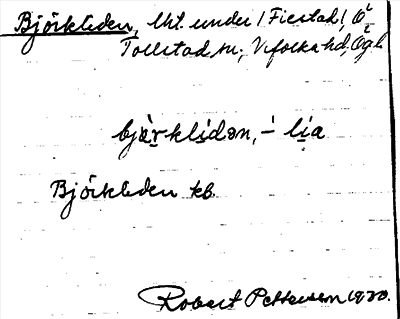 Björkleden, lht. under /Fiestad/, Ö.
Tollstad sn., Vifolka hd, Ögl.
bjærklidən, -lia
Björkleden kb.
Robert Pettersson 1930.